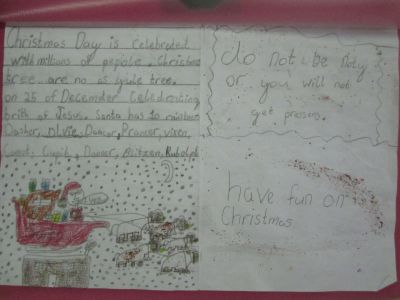 Christmas Day is celebrated
with millions of pepole. Christmas
tree are no as yule tree.
on 25 of December Celebrating
brith of Jesus. Santa has 10 reindeer
Dasher, Dancer, Prancer, vixen,
Comet, Cupid, Donner, Blitzen, Rudolph
do not be noty
or you will not
get presens.
have fun on
Christmas